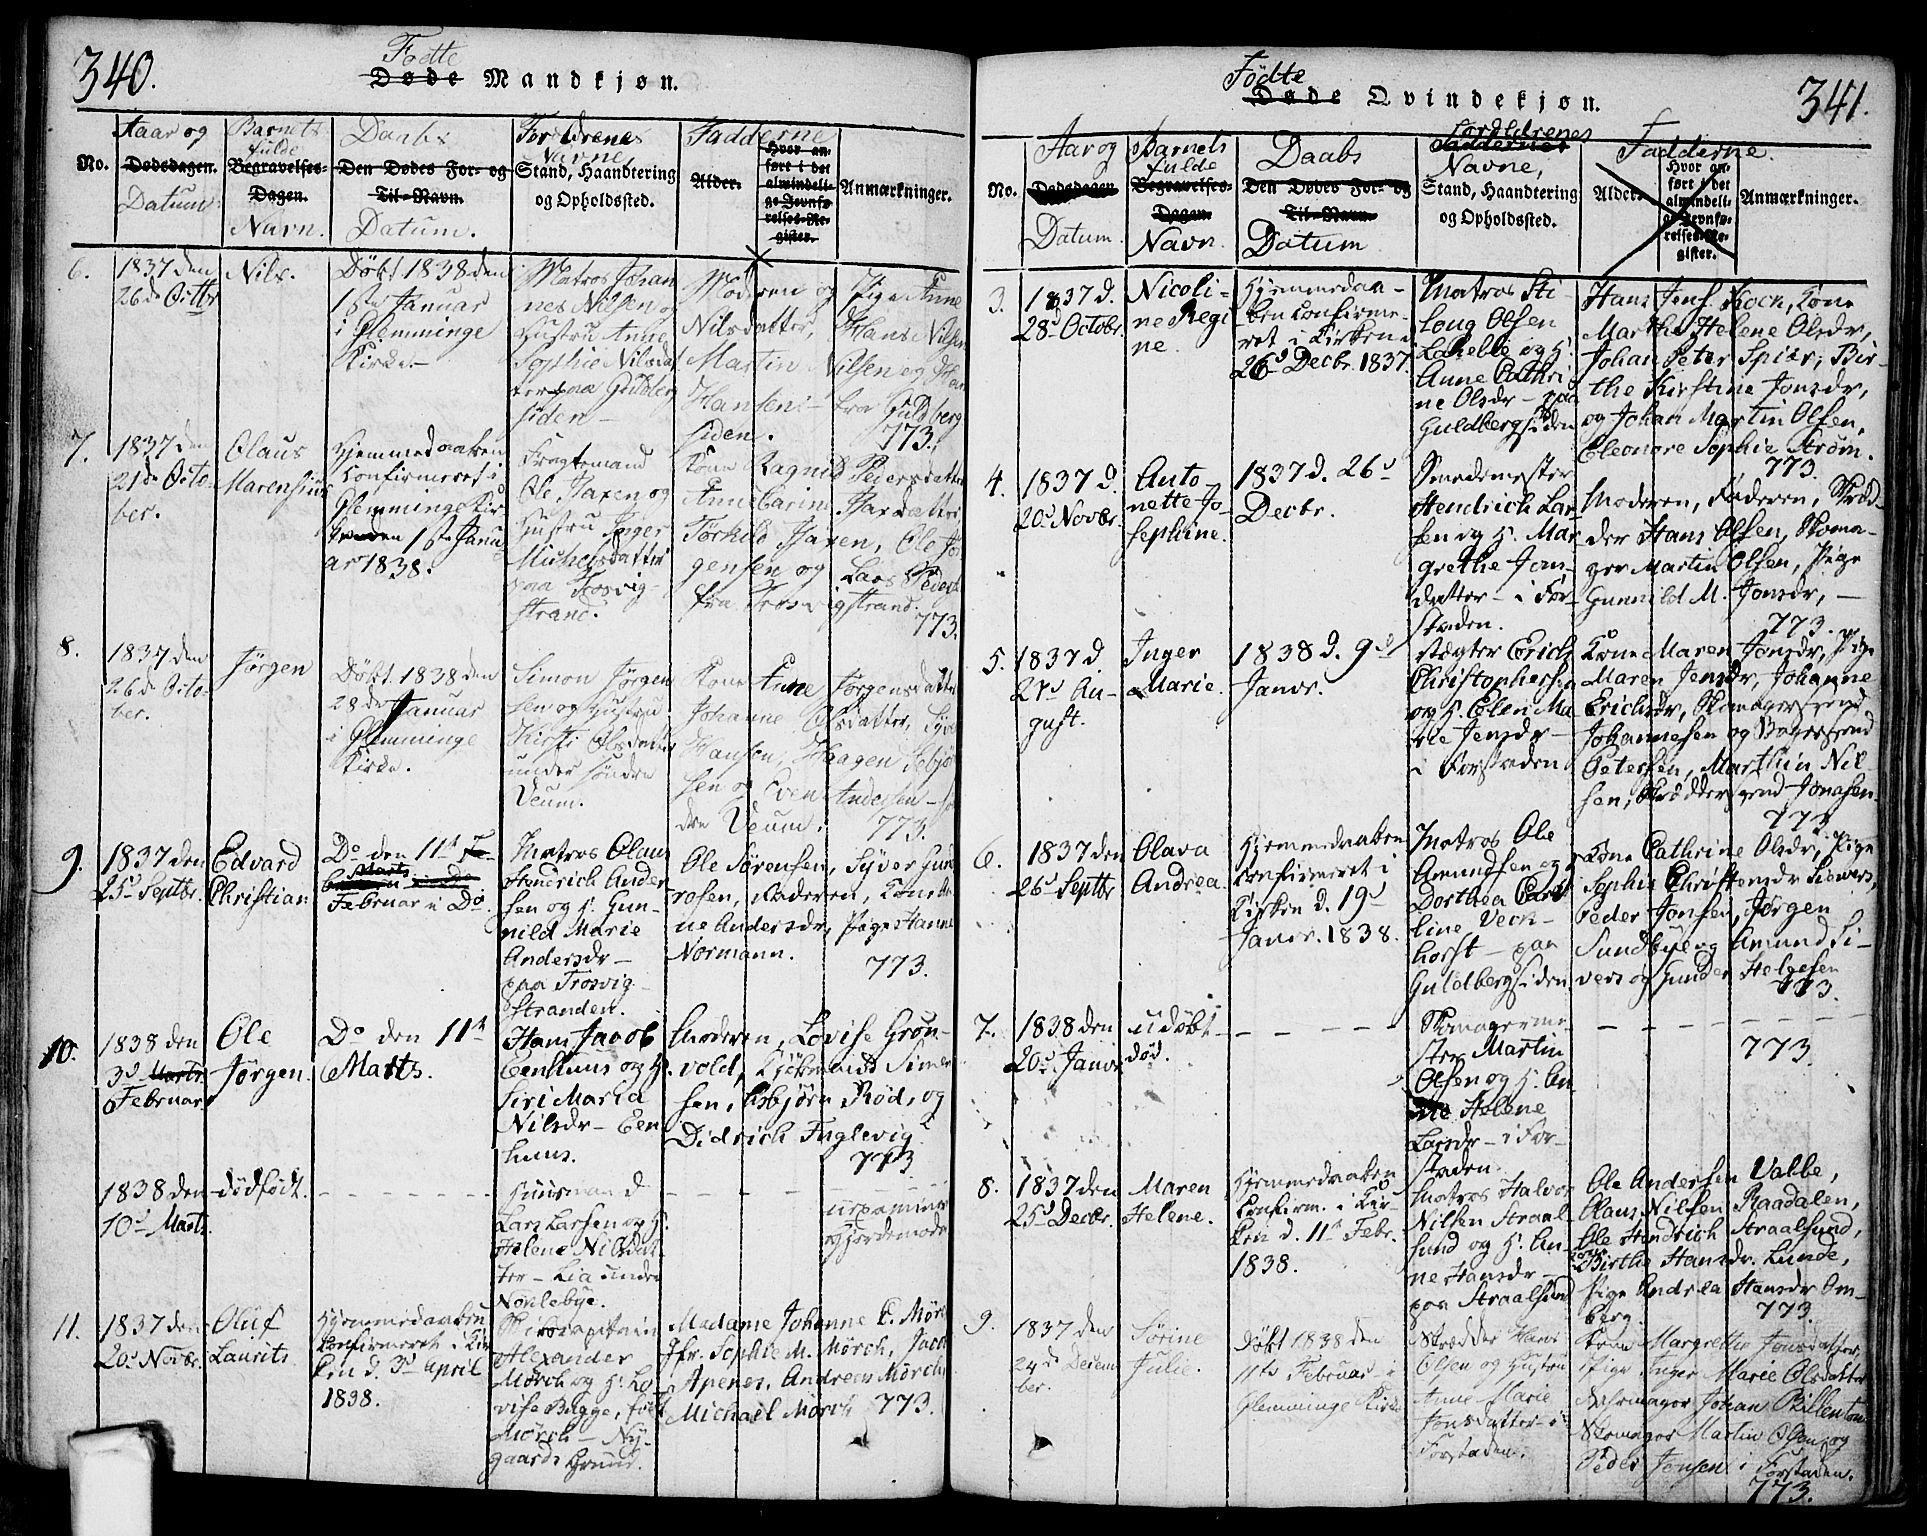 340.
Fødte
Døde Mandkjøn.
No.
Aaar og
Dødsdagen.
Datum
Barnets
fulde
Begravelses-
Dagen.
Navn.
Daabs
Den Dødes For- og
Til-Navn.
Datum.
Forældrenes
Navne
Stand, Haandtering
og Opholdssted.
Fadderne
Alder.
Hvor an-
ført i det
almindeli-
ge Jevnfø-
relses-Re-
gister.
Anmærkninger.
6.
1837 den
26de Octbr
Nils.
Døbt 1838 den
1ste Januar
i Glemminge
Kirke.-
Matros Johan
nes Nilsen og
Hustru Anne
Sophie Nilsdat
ter paa Guldberg
siden -
Moderen og Pige Anne
Nilsdatter, Hans Nilsen
Martin Nilsen og
Hansen - fra Guldberg
siden.
773.
7.
1837 den
21de Octo-
ber.
Olaus
Marensius
Hjemmedøbt
Confirmeret i
Glemminge Kir-
den 1ste Janu
ar 1838.
Fragtemand
Ole Isaxen og
Hustru Inger
Michelsdatter
paa Trosvig-
strand.
Kone Ragnild Pedersdatter
Anne Carine Isaxdatter
Torkild Isaxen, Ole Jør
gensen og Lars Peders
fra Trosvigstrand.
773.
8.
1837 den
26de Octo-
ber.
Jørgen
Døbt 1838 den
28de Januar
i Glemminge
Kirke.
Simon Jørgen
sen og Hustru
Kirsti Olsdatter
under søndre
Veum.
Kone Anne Jørgensdatter
Johanne Olsdatter, Syver
Hansen, Haagen Sebjør
sen og Even Andersen - sø
dre Veum.
773.
9.
1837 den
25d Septbr.
Edvard
Christian
Do den 11te
Februar i Do.
Matros Olaus
Hendrich Ander
sen og H. Gun-
nild Marie
Andersdr -
paa Trosvig
Stranden.
Ole Sørensen, Syver Gund
rosen, Faderen, Kone An
ne Andersdr, Pige Hanne
Normann.
773.
10.
1838 den
3d Marts
Februar
Ole
Jørgen.
Do den 11te
Marts.
Hans Jacob
Eenhuus og H.
Siri Maria
Nilsdr - Een
huus.
Moderen, Lovise Grøn-
vold, Kjøbmand Simen
sen, Asbjørn Rød, og
Didrich Inglevig
773
1838 den
10d Marts
dødfødt.
Huusmand
Lars Larsen og H.
Helene Nilsdat-
ter - Lia under
Nønlebye.
uexaminer
Gjordemoder
11.
1837 den
20d Novbr.
Oluf
Laurits
Hjemmedaaben
Confirmeret i Kir
ken d. 3d April
1838.
Skibscapitain
Alexander
Mørch og H. Lo-
vise Bugge, født
Mørch - Ny-
gaards Grund.
Madame Johanne E. Mørch
Jfr. Sophie M. Mørch, Jacob
Apenes, Andreas Mørch,
Michael Mørch
773.
341.
Fødte
Døde Qvindekjøn.
No.
Aar og
Dødsdagen
Datum.
Barnets
fulde
Begravelses-
Dagen.
Navn.
Daabs
Den Dødes For- og
Til-Navn.
Datum
Forældrenes
Faddernes
Navne,
Stand, Haandtering
og Opholdssted.
Fadderne.
Alder.
Hvor an-
ført i det
almindeli-
ge Jevnfø-
relses-Re-
gister.
Anmærkninger.
3.
1837 d.
28d Octobr.
Nicoli-
ne Regi
ne.
Hjemmedaa-
ben Confirme-
ret i Kirken
26d Decbr. 1837.
Matros Sti-
Olsen
Lakeble og H.
Anne Cathri
ne Olsdr - paa
Guldbergsiden
Hans Jens. Kock, Kone
Marthe Helene Olsdr,
Johan Peter Spitz, Bir-
the Kirstine Jonsdr,
og Johan Martin Olsen,
Eleonore Sophie Strøm.
773.
4.
1837 d.
20d Novbr.
Anto
nette Jo-
sephine.
1837 d. 26d
Decbr.
Smedemester
Hendrich Lar-
sen og H. Mar
grethe Jans
datter - i For-
staden.
Moderen, Faderen, Skræd-
der Hans Olsen, Skoma-
ger Martin Olsen, Pige
Gunnild M. Jonsdr, -
773.
5.
1837 d
27d Au-
gust.
Inger
Marie.
1838 d. 9d
Janvr.
Slagter Erich
Christophersen
og H. Elen Ma
rie Jensdr -
i Forstaden
Kone Maren Jonsdr, Pige
Maren Jensdr, Johanne
Erichsdr, Skomagersvend
Johannesen og Bagersvend
Petersen, Marthin Nil
sen, Skræddersvend Jonasen.
773
6.
1837 den
26d Septbr
Olava
Andrea.
Hjemmedaaben
Confirmeret i
Kirken d. 19d
Janvr. 1838.
Matros Ole
Amundsen og
Dorthea Caro
line Veck-
horst - paa
Guldbergsiden
Kone Cathrine Olsdr, Pige
Sophie Christensdr Siewers,
Peder Jonsen, Jørgen
Sundbye og Amund Si-
vers og Gunder Helgesen
773.
7.
1838 den
20d Janvr
udøbt
død.
Skomagerme-
ster Martin
Olsen og H. An
ne Helene
Larsdr - i For-
staden.
773
8.
1837 den
25d Decbr.
Maren
Helene.
Hjemmedaaben
Confirm. i Kir-
ken d. 11te Febr.
1838.
Matros Halvor
Nilsen Straal
sund og H. An-
ne Hansdr -
paa Straalsund
Ole Andersen Valbe,
Claus Nilsen Raadalen,
Ole Hendrich Straalsund,
Kone Birthe Hansdr. Lunde,
Pige Andrea Hansdr Om-
berg.
773.
9.
1837 den
24de Decem
ber.
Sørine
Julie.
Døbt 1838 den
11te Februar - i
Glemminge Kirke
Skrædder Hans
Olsen og Hustru
Anne Marie
Jonsdatter - i
Forstaden.
Kone Margrethe Jonsdatter,
Pige Inger Marie Olsdatter
Skomager Johan
Skomager Martin Olsen og
Peder Jensen i Forstaden.
773.